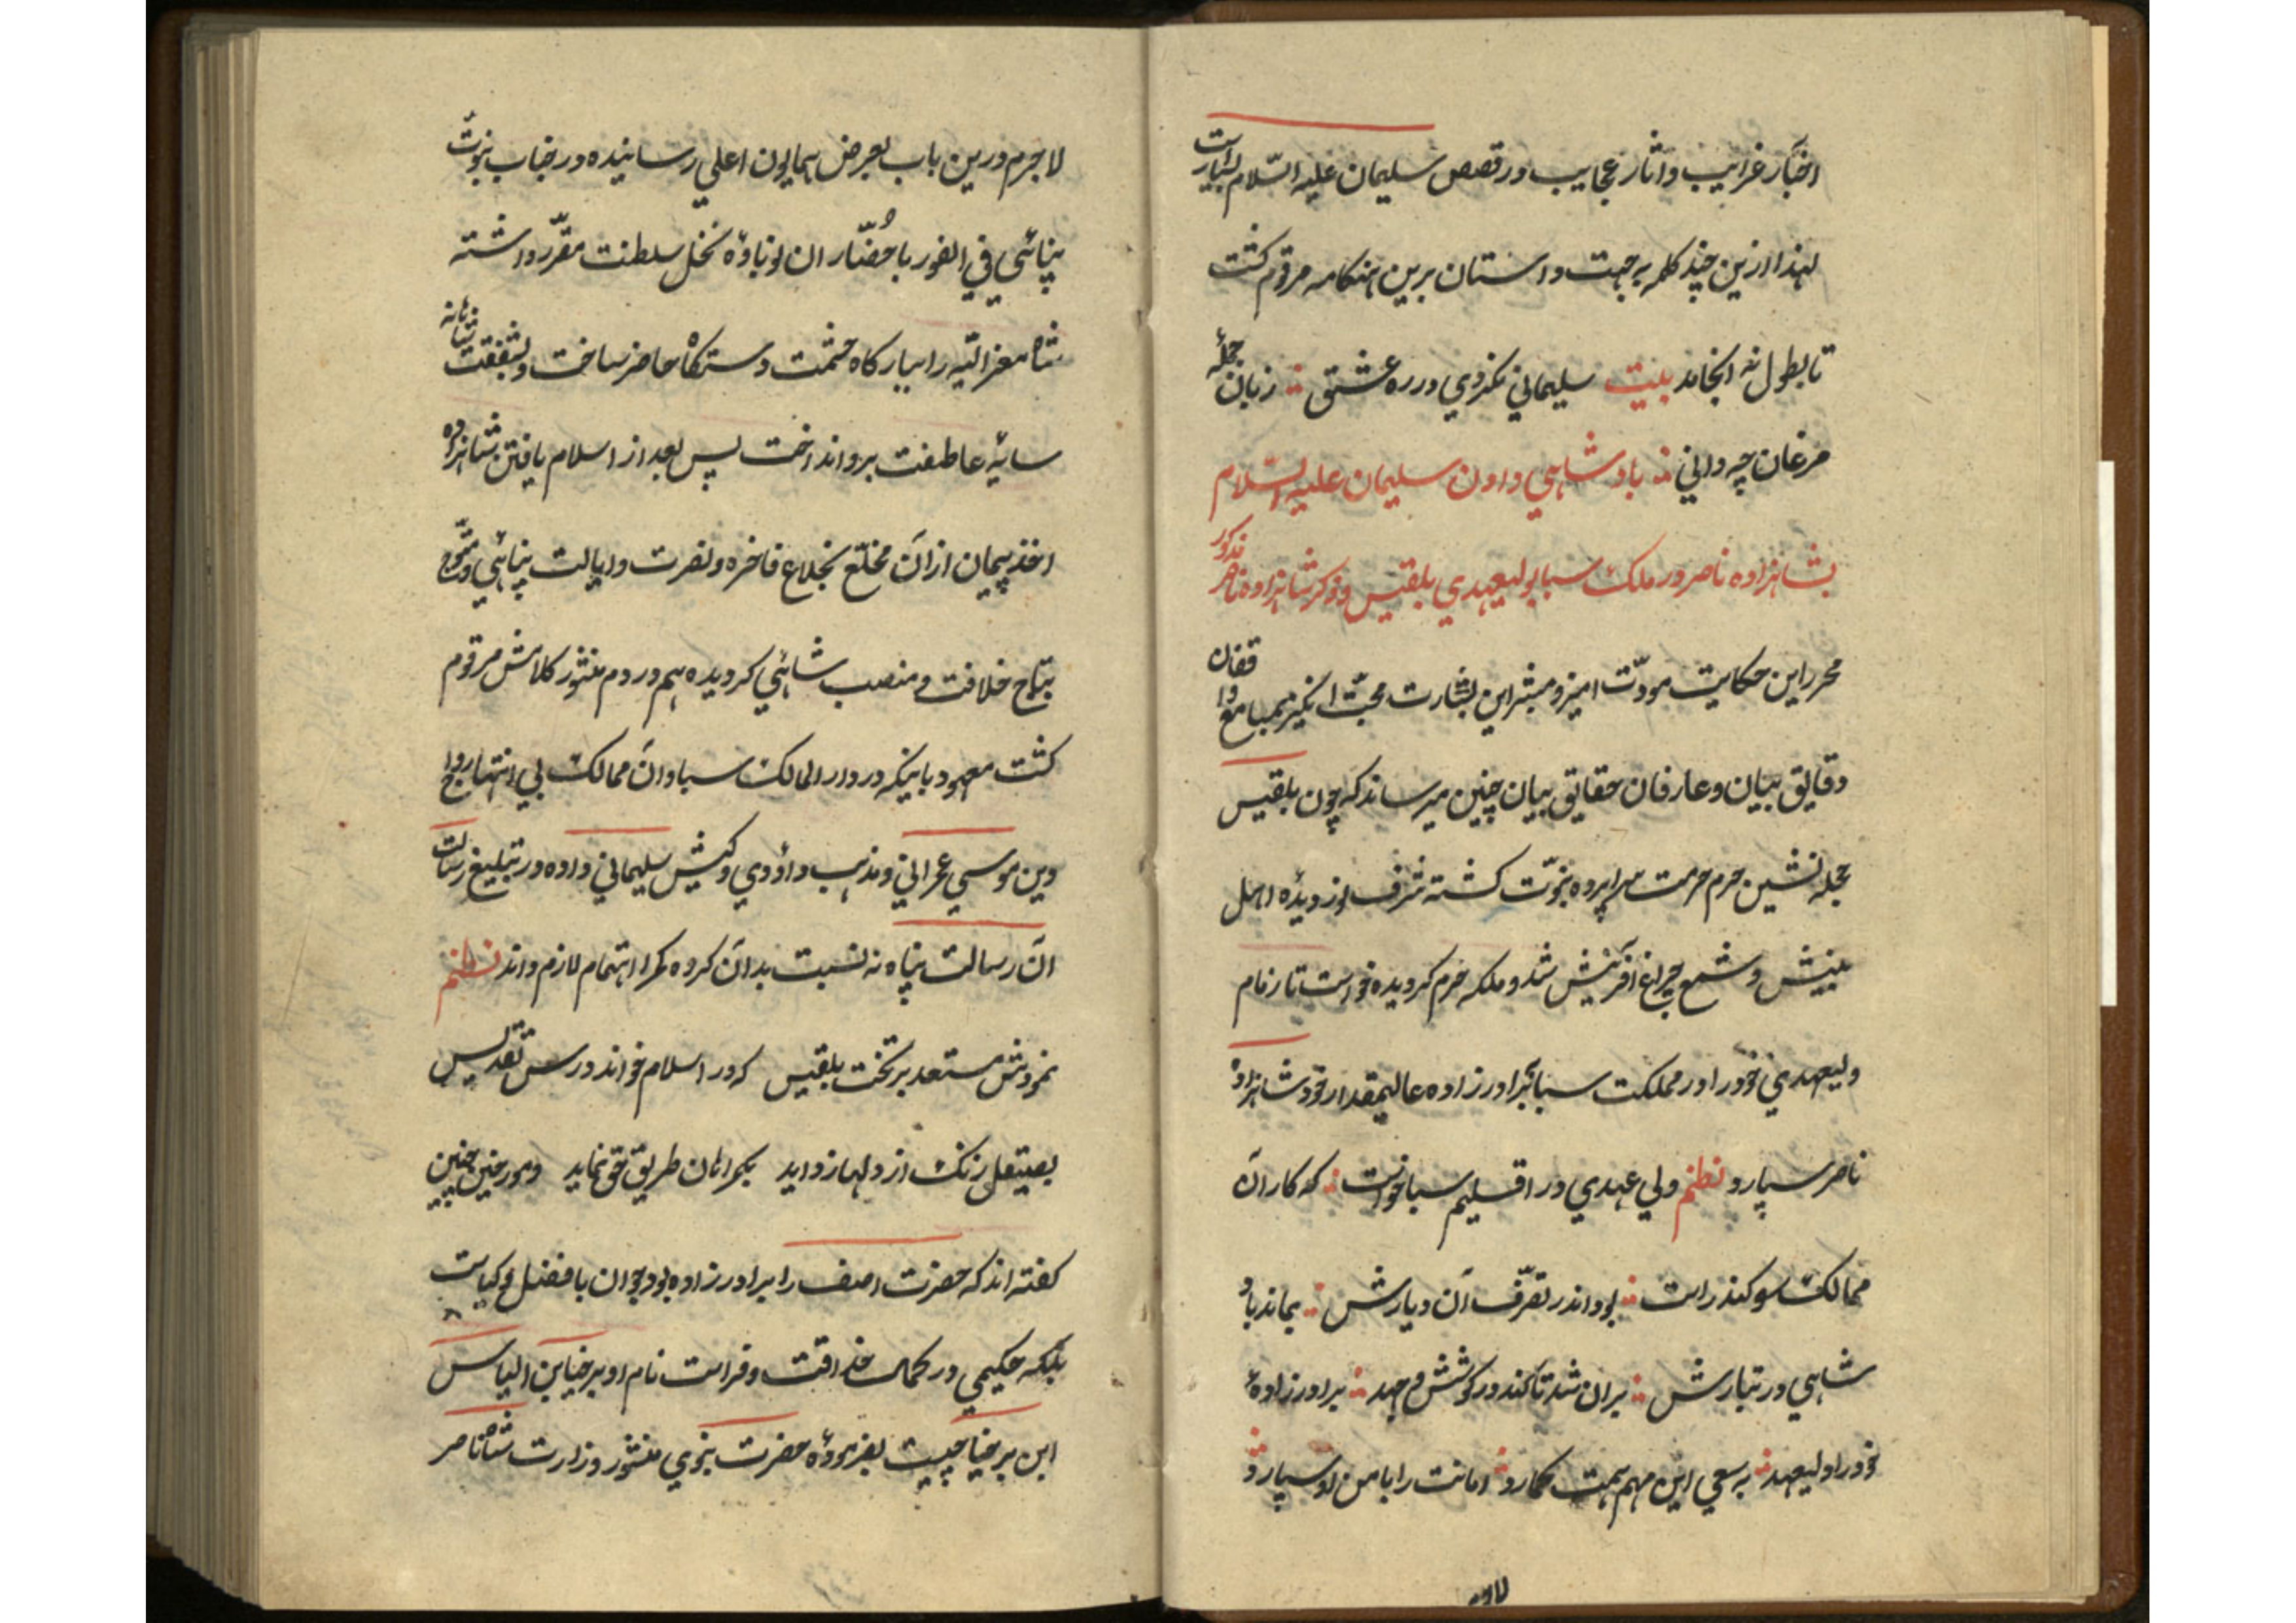 اخبار غرایب و اثار عجایب در قصص سلیمان علیه السّلام بسیارست
لهذا ازین چند کلمه به جهت داستان برین هنکامه مرقوم کشت
تا بطول نه انجامد بیت سلیمانی نکردی در ره عشق ∴ زبان جملهٔ
مرغان چه دانی ∴ بادشاهی دادن سلیمان علیه السّلام
بشاهزاده ناصر در ملک سبا بولیعهدی بلقیس و ذکر شاهزاده ناصر مذکور
محرر این حکایت مودّت امیز و مبشر این بشارت محبّت انکیز بمسامع واقفان
دقایق بیان و عارفان حقایق بیان چنین میرساند که چون بلقیس
حجله نشین حرم حرمت سراپرده نبوّت کشته شرف اوز دیدهٔ اهل
بینش و شمع چراغ آفرینش شد و ملکه خرم کردیده خواست تا زمام
ولیعهدی خود را در مملکت سبا ببرادر زاده عالیمقدار خود شاهزاده
ناصر سپارد نظم ولی عهدی در اقلیم سبا خواست ∴ که کار آن
ممالک سو کند راست ∴ بود اندر تصرّف آن دیارش ∴ بماند باد
شاهی در تبارش ∴ بران شد تا کند در کوشش و جهد ∴ برادر زادهٔ
خود را ولیعهد ∴ به سعی این مهم همت کمارد ∴ امانت را بامن او سپارد ∴
لاجرم
لاجرم درین باب بعرض همایون اعلی رسانیده در جناب نبوّت
پنائی فی الفور با حُضّار ان نوباوهٔ نخل سلطنت مقرّر داشته
شاه معزالیّه را ببارکاه حشمت دستکاه حاضر ساخت و بشفقت شاهانه
سایهٔ عاطفت برو انداخت پس بعد از اسلام یافتن شاهزاده
اخذ پیمان از آن مخلّع بخلاع فاخره و نصرت و ایالت پناهی و متّوج
بتاج خلافت و منصب شاهی کردیده هم در دم منشور کلامش مرقوم
کشت معهود باینکه در دار الممالک سبا و آن ممالک بی انتها رواج
دین موسی عمرانی و مذهب داؤدی و کیش سلیمانی داده در تبلیغ رسالت
آن رسالت پناه نه نسبت بدان کروه کمرا اهتمام لازم داند نظم
نمودش مستعد بر تخت بلقیس که در اسلام خواند درس تقدیس
بصیقل زنک از دلها زداید بکمراهان طریق حق نماید و مورخین چنین
کفته اند که حضرت اصف را برادر زاده بود جوان با فضل و کیاست
بلکه حکیمی در کمال حذاقت و فراست نام او برخیا بن الیاس
ابن برخیا چیست بفرمودهٔ حضرت نبوی منشور وزارت شاه ناصر